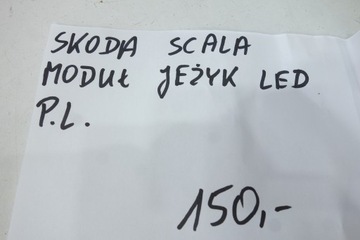 SKODA SCALA
MODUŁ JEŻYK LED
P.L.
150,-